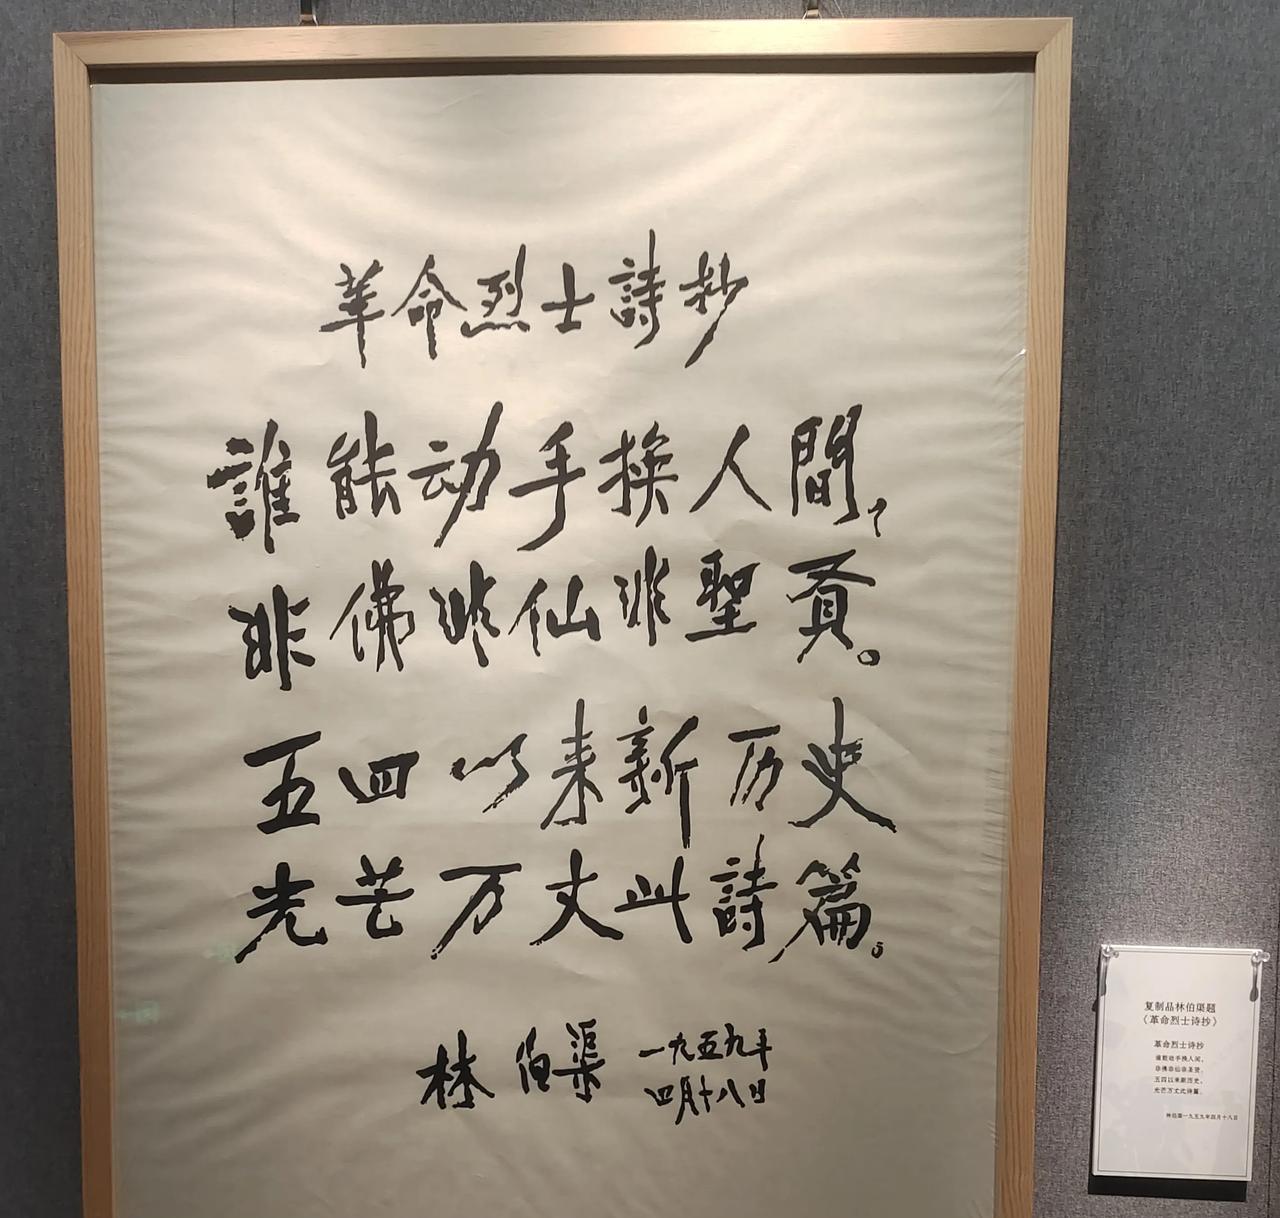 革命烈士詩抄
誰能动手換人間，
非佛非仙非聖賢。
五四以来新历史
光芒万丈此詩篇。
林伯渠
一九五九年
四月十八日
复制品林伯渠题
《革命烈士诗抄》
革命烈士诗抄
谁能动手换人间，
非佛非仙非圣贤。
五四以来新历史，
光芒万丈此诗篇。
林伯渠一九五九年四月十八日